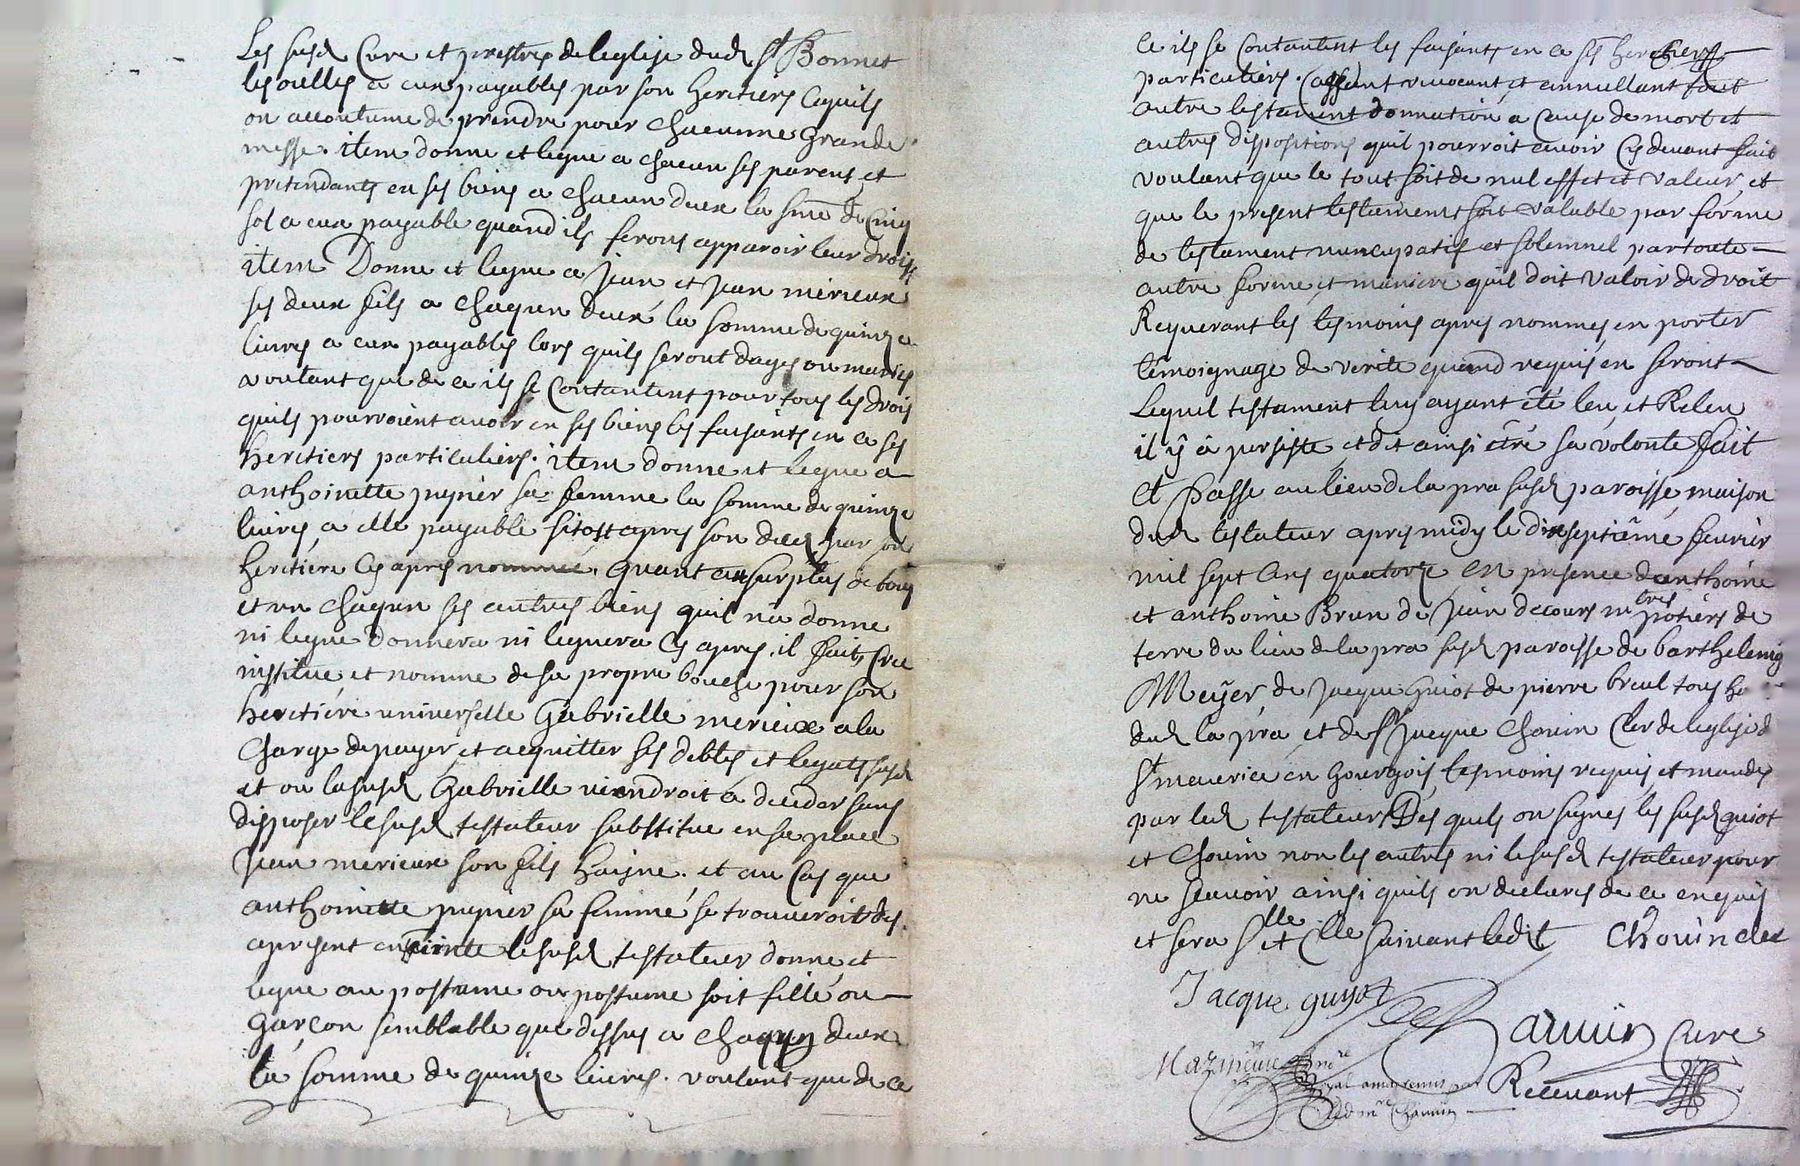 Les susd Cure et prestres de leglise dud St Bonnet
lesquelles a eux payables par son heretiers cequils
on accoutume de prendre pour chacunne Grande
messe. item donne et legue a chacun ses parens et
pretendants en ses biens a chacun deux la sme de Cinq
sol a eux payable quand ils ferons apparoir leur droits
item Donne et legue a Jean et Jean merieux
ses deux fils a chaqun deux la somme de quinze
livres a eux payables lors quils seront dages ou maries
voulant que de ce ils se Contantent pour tous les drois
quils pourroient avoir en ses biens les faisants en ce ses
heretiers particuliers. item donne et legue a
anthoinette pupier sa femme la somme de quinze
livres a elle payable sitost apres son deces par son
heretiere cy apres nommée. quant au surplus de tous
et un chaqun ses autres biens quil na donne
ni legue donnera ni leguera cy apres. il fait, Cree
institue, et nomme de sa propre bouche pour son
heretiere universelle Gabrielle merieux a la
Charge de payer, et acquitter ses debtes et legats susd
et ou lasusd Gabrielle viendroit a deceder sans
disposer lesusd testateur substitue en sa place
Jean merieux son fils haisne. et au Cas que
anthoinette pupier sa femme se trouveroit des
apresent enceinte lesusd testateur donne et
legue au postume ou postume soit fille ou
Garçon semblable que dessus a chaqun deux
la somme de quinze livres. voulant que de ce
ce ils se Contantent les faisants en ce ses heretiers
particuliers. Cassant revocant et annullant tout
autre testament donnation a Cause de mort et
autres dispositions quil pourroit avoir Cy devant fait
voulant que le tout soit de nul effet et valeur, et
que le present testament soit valuble par forme
de testament nuncupatif et solemnel par toute
autre forme et maniere quil doit valoir de droit
Requerant les tesmoins apres nommes en porter
temoignage de verite quand requis en seront
Lequel testament luy ayant été leu, et Releu
il y à persiste et dit ainsi être sa volonte fait
et passe au lieu de la pra susd paroisse maison
dud testateur apres midy le dixseptiême fevrier
mil sept Cens quatorze en presence danthoine
et anthoine Brun de Jean decours mtres potiers de
terre du lieu de la pra susd paroisse de barthelemy
Meyer, de Jacque Guiot de pierre breul tous
dud la pra et de St Jacque Chouin Cler de leglise d
St maurice en Gourgois tesmoins requis et mandes
par led testateur Des quels on signes les susd guiot
et Chouin non les autres ni lesusd testateur pour
ne scavoir ainsi quils on declares de ce enquis
et sera Slle et Clle suivant ledit Chouin cler
Jacque guyot
Cure
Recevant